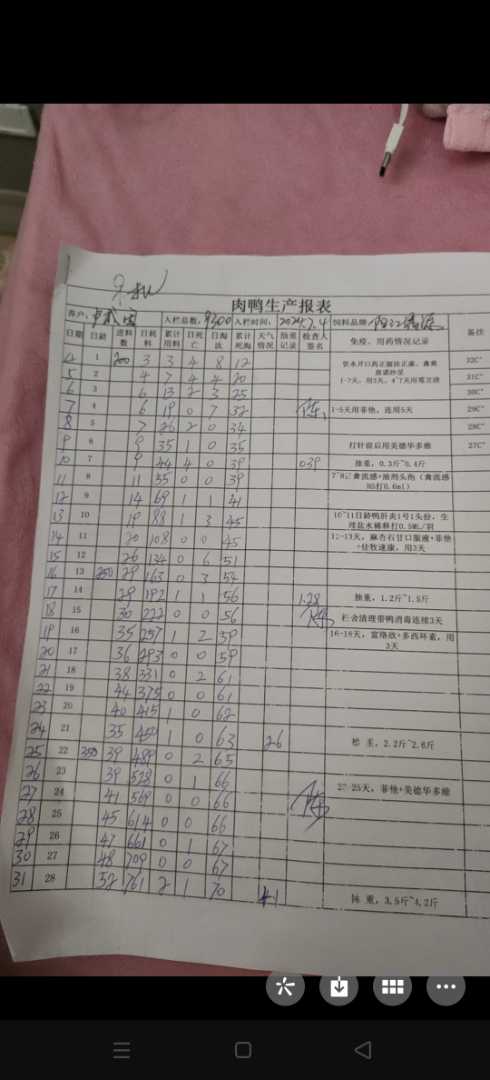 肉鸭生产报表
养户: 入栏总数: 9300 入栏时间: 2024.7.4 饲料品牌:
日期 日龄 进料数 日耗料 累计用料 日死亡 日淘汰 累计死淘 天气情况 抽重记录 检查人签名 免疫、用药情况记录 备注
4 1 200 3 3 4 8 12 32C°
5 2 4 7 4 4 20 1-7天, 31C°
6 3 6 13 2 3 25 30C°
7 4 6 19 0 7 32 陈 1-5天用菲他,连用5天 29C°
8 5 7 26 2 0 34 28C°
9 6 9 35 1 0 35 打针前后用美德华多维 27C°
10 7 9 44 4 0 39 039 抽重,0.3斤~0.4斤
11 8 11 55 0 0 39 禽流感+油剂头孢(禽流感H5打0.6ml)
12 9 14 69 1 1 41
13 10 19 88 1 3 45 10~11日龄鸭肝炎1号1头份,生理盐水稀释打0.5ML/羽
14 11 20 108 0 0 45 麻杏石甘口服液+菲他+佳牧速康,用3天
15 12 26 134 0 6 51
16 13 250 29 163 0 3 54
17 14 29 192 1 1 56 1.28 抽重,1.2斤~1.5斤
18 15 30 222 0 0 56 陈 栏舍清理带鸭消毒连续3天
19 16 35 257 1 2 59 16-18天,富络欣+多西环素,用3天
20 17 36 293 0 0 59
21 18 38 331 0 2 61
22 19 44 375 0 0 61
23 20 40 415 1 0 62
24 21 35 450 1 0 63 26 抽重,2.2斤~2.6斤
25 22 350 39 489 0 2 65
26 23 39 528 0 1 66
27 24 41 569 0 0 66 陈 25天,菲他+美德华多维
28 25 45 614 0 0 66
29 26 47 661 0 1 67
30 27 48 709 0 0 67
31 28 52 761 2 1 70 41 抽重,3.5斤~4.2斤